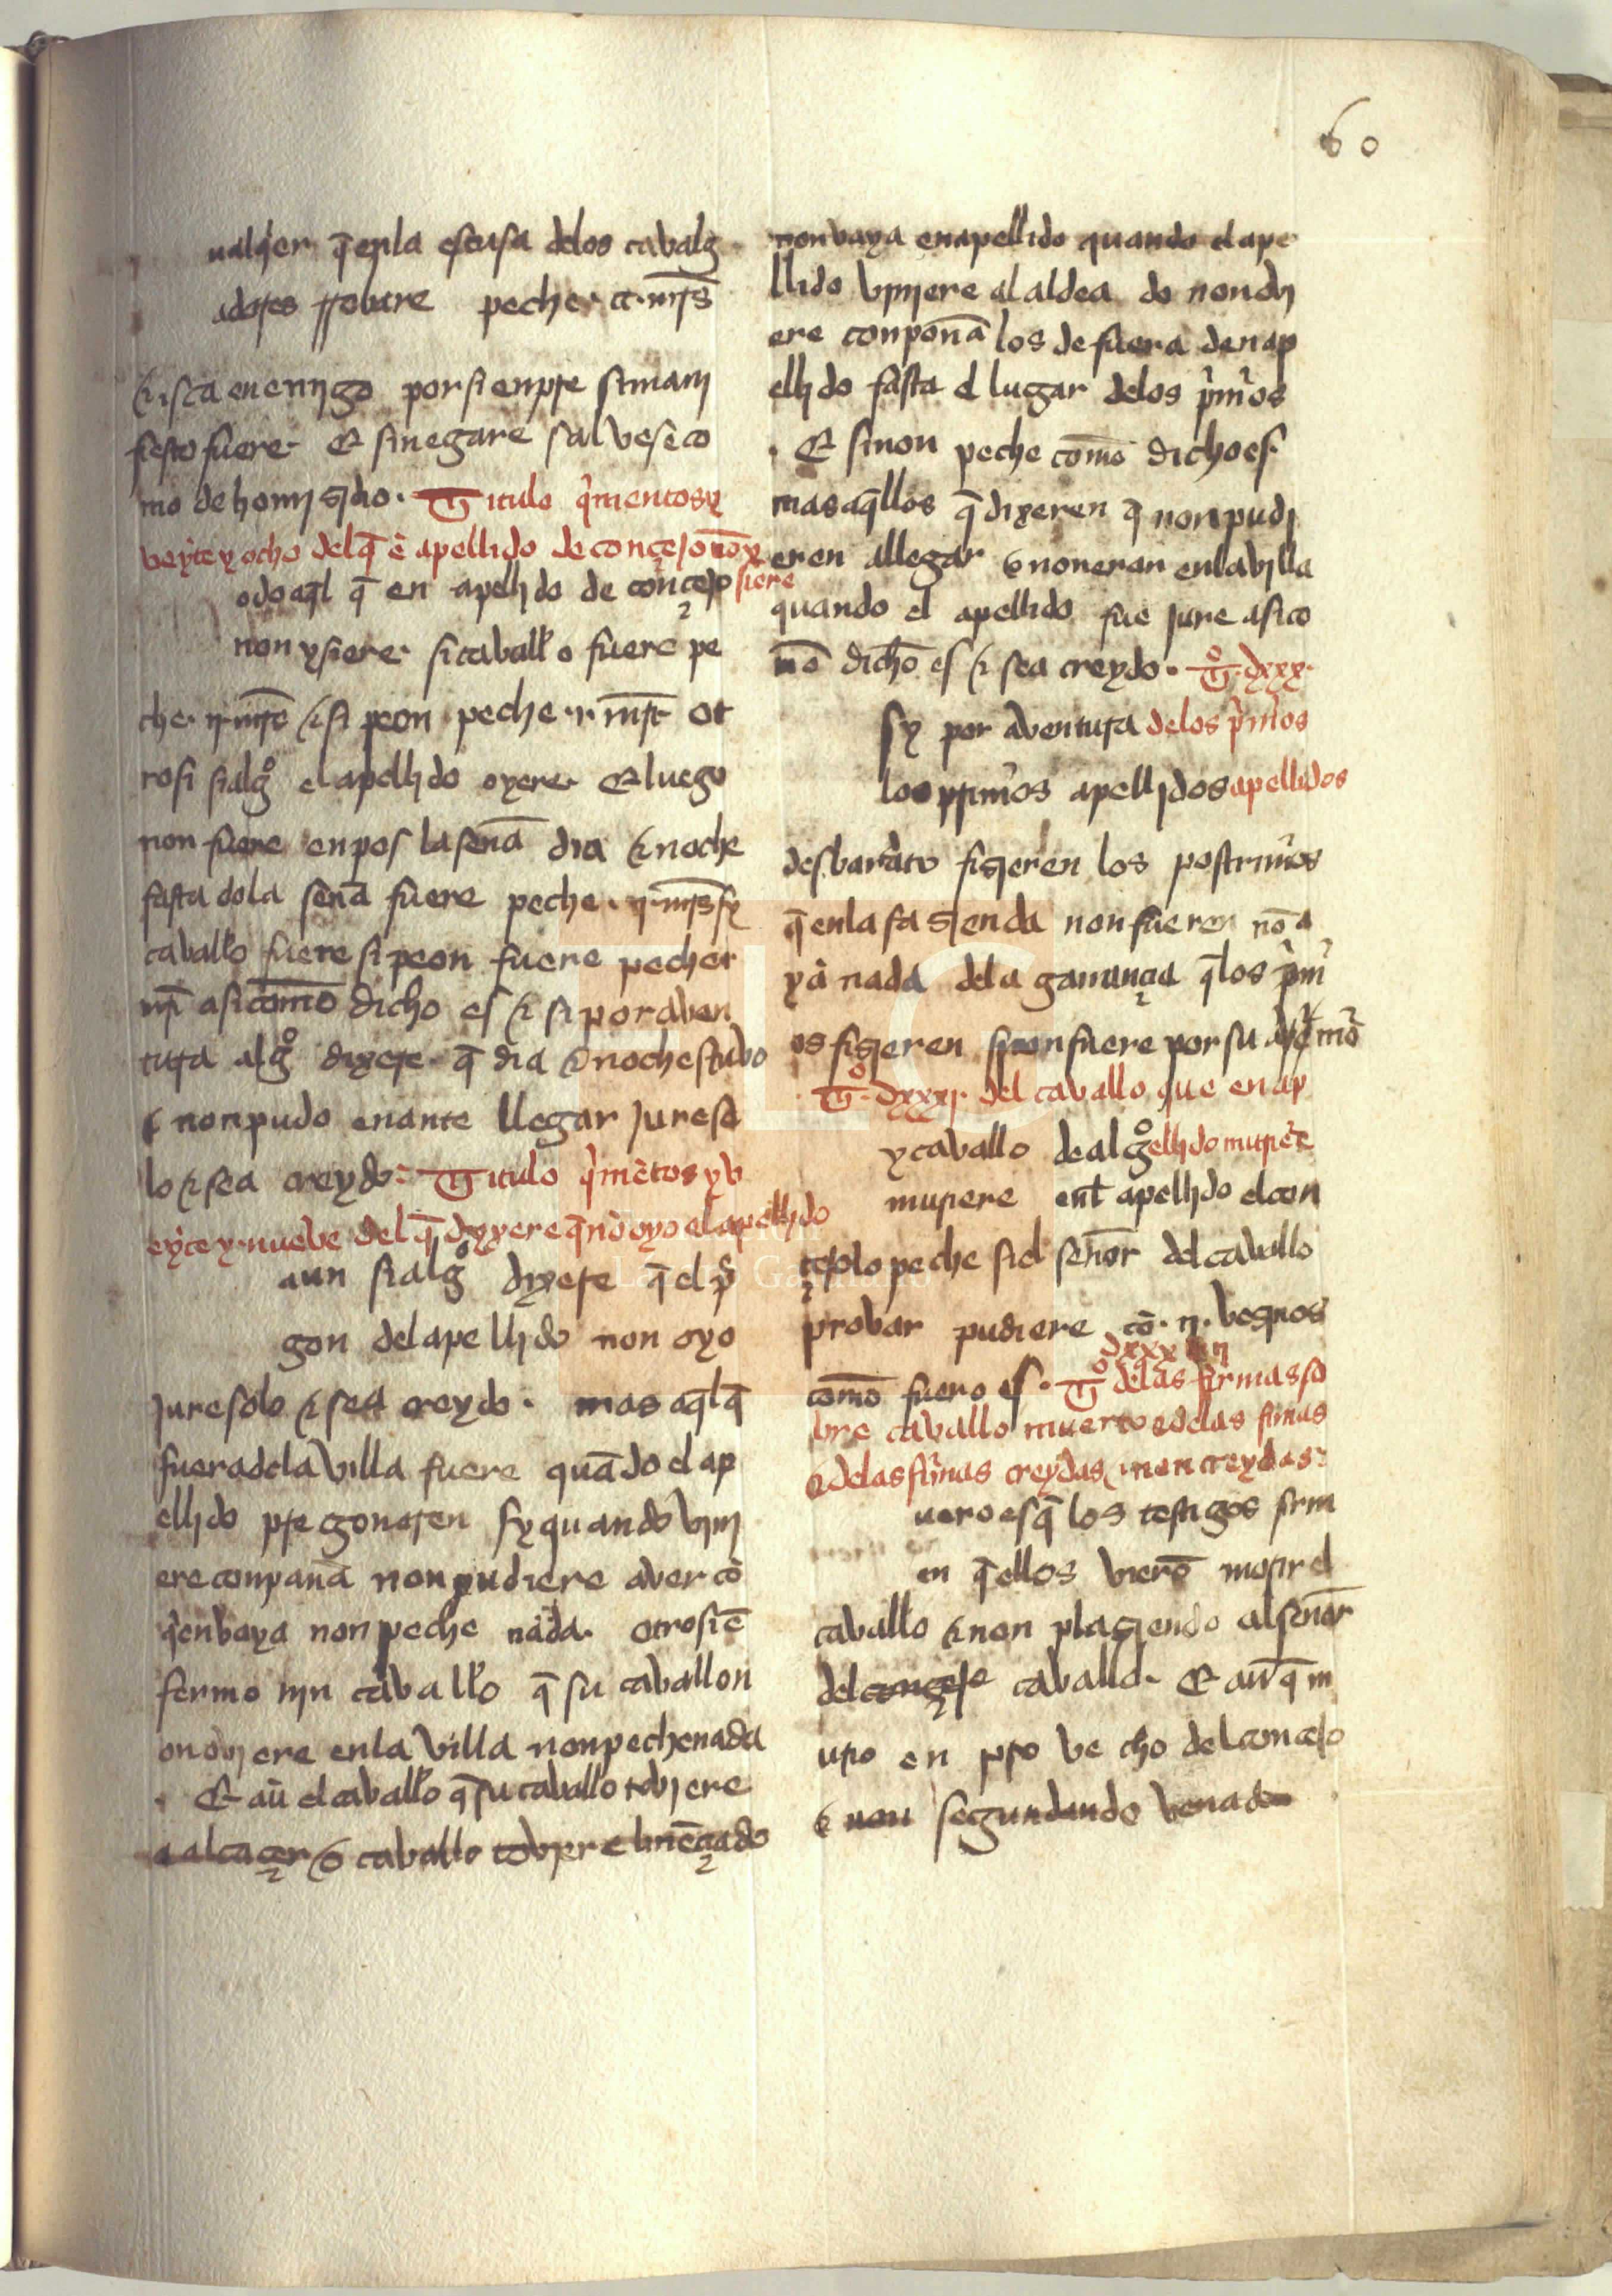 60
ualq̉er q̄ enla escusa delos cavalg
adores rrobare peche · cc · mr̄s
⁊ isca enemigo por sienpre si mani
fiesto fuere · Et si negare salvese co
mo de homisidio · Titulo q̉nientos y
veȳte y ocho del q̄ ē apellido de conçejo nō y
siere
odo aq̄l q̄ en apellido de conçejo
non ysiere · si cavallo fuere pe
che · ij · mr̄s ⁊ si peon peche · i · mr̄ Ot
rosi si algo el apellido oyere · Et luego
non fuere en pos la seña dia ⁊ noche
fasta do la seña fuere peche · ij · mr̄s sy
cavallo fuere si peon fuere peche i
mr̄ asi commo dicho es ⁊ si por aven
tura algo dixere · q̄ dia ⁊ noche stuvo
⁊ non pudo enante llegar jurese
lo ⁊ sea creydo · Titulo q̉niētos y v
eyte y nueve del q̄ dixere q̄ nō oyo el apellido
aun si algo dixere q̄ el p̄
gon del apellido non oyo
jureselo ⁊ sea creydo · mas aq̄l q̄
fuera dela villa fuere quādo el ap
ellido pregonaren sy quando vini
ere conpaña non pudiere aver cō
q̉en vaya non peche nada · otrosi ē
fermo nin cavallo q̄ su cavallo n
on oviere enla villa non peche nada
· Et aū el cavallo q̄ su cavallo toviere
a alcaçer o cavallo toviere linēçiado
non vaya en apellido quando el ape
llido viniere al aldea do non ovi
ere conpoña los de fuera den ap
ellido fasta el lugar delos p̉m̉os
· Et si non peche commo dicho es ·
mas aq̄llos q̄ dixeren q̄ non pudi
eren allegar o non eran enla villa
quando el apellido fue jure asi co
mō dicho es ⁊ sea creydo · Tº · dxxx ·
Sy por aventura delos p̉m̉os
los prim̉os apellidos apellidos
desbarato fizieren los postrim̉os
q̄ enla fazienda non fueren nō a
yā nada dela ganançia q̄ los p̉m̉
os fizieren si non fuere por su
Tº · dxxxj · del cavallo que en ap
y cavallo de algo ellido muriere
muriere enl apellido el con
çejo lo peche si el señor del cavallo
probar pudiere cō · ij · vezinos
dxxxij
commo fuero es · Tº delas firmas so
bre cavallo muerto ⁊ delas firmas
⁊ delas firmas creydas ⁊ non creydas ·
uero es q̄ los testigos firm
en q̄ ellos vierō morir el
cavallo ⁊ non plaziendo al señor
del conçeje cavallo · Et aun q̄ m
urio en provecho del conçejo
⁊ non segundando venado